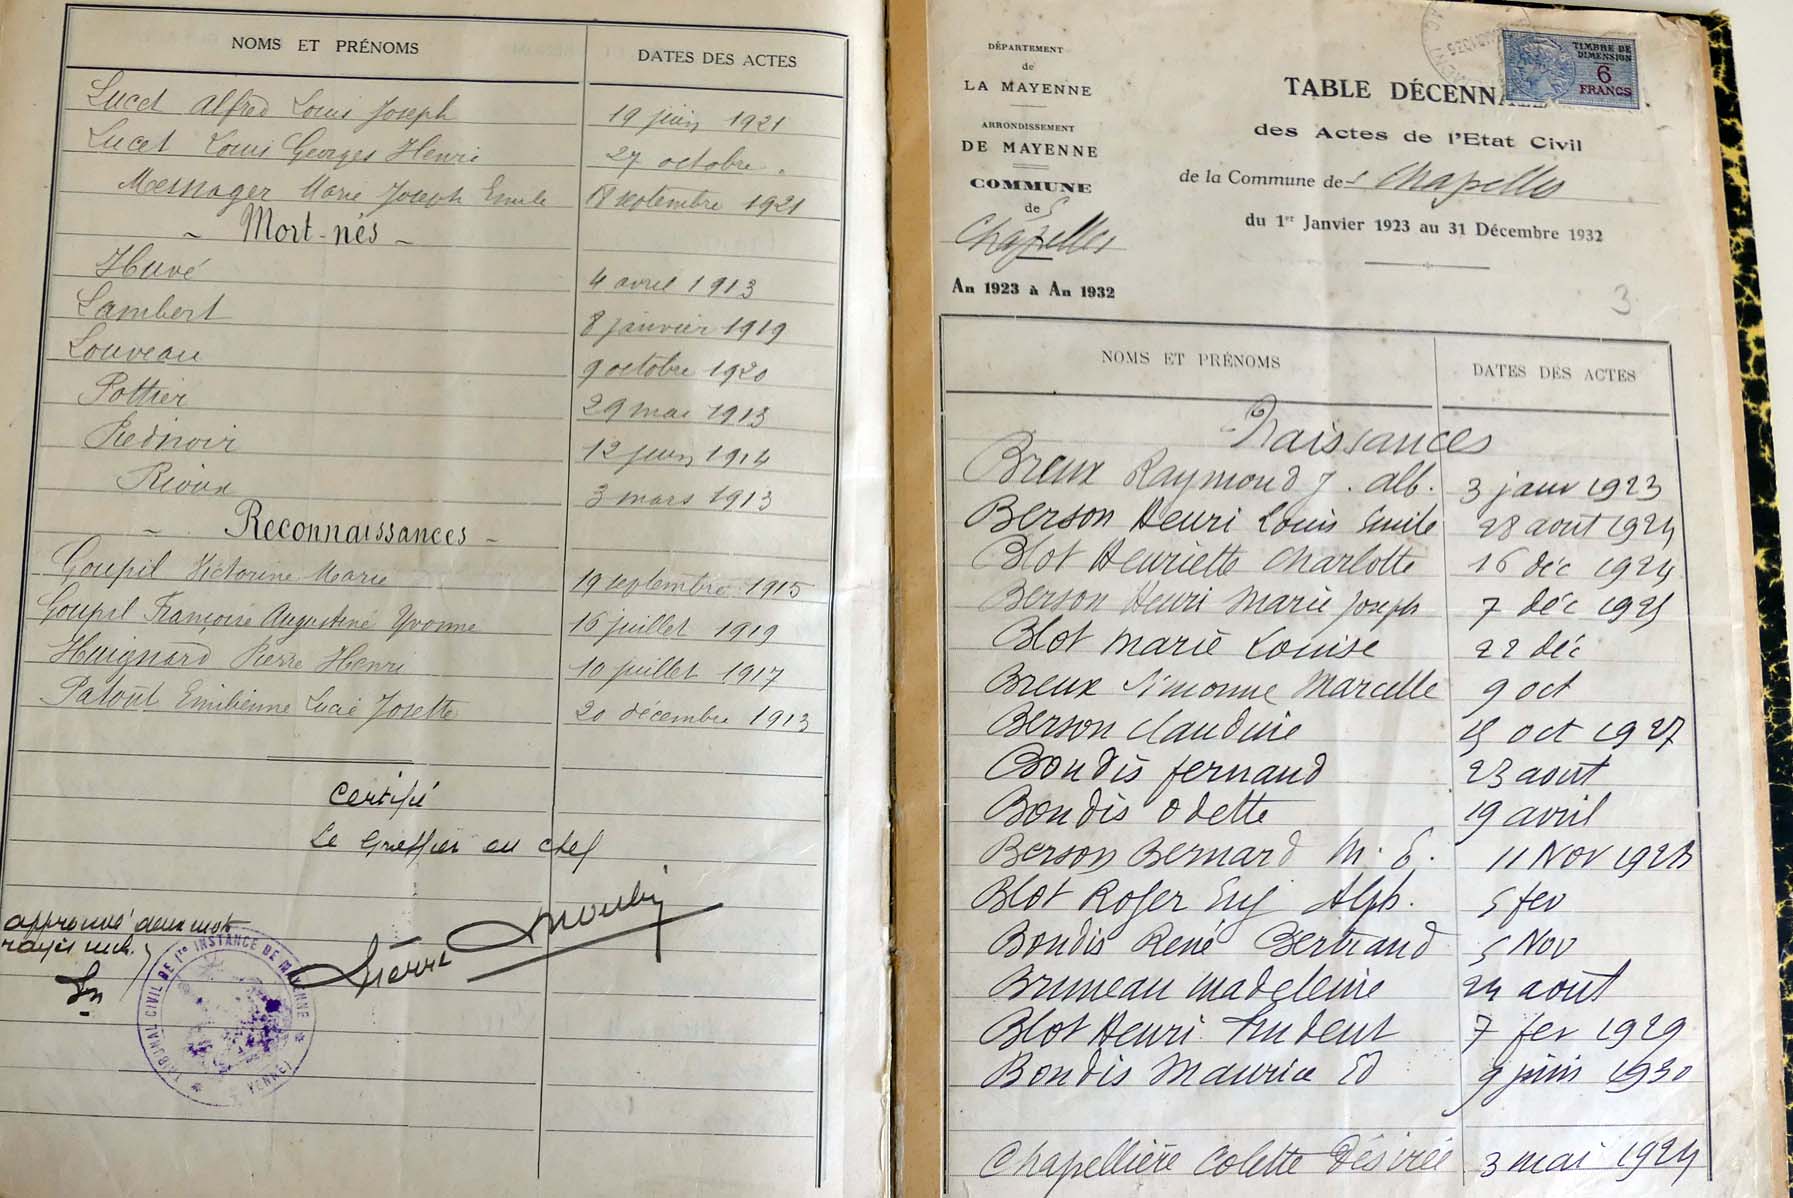 NOMS ET PRÉNOMS DATES DES ACTES
Lucet Alfred Louis Joseph 19 juin 1921
Lucet Louis Georges Henri 27 octobre "
Messager Marie Joseph Emile 18 septembre 1921
- Mort-nés -
Huvé 4 avril 1913
Lambert 8 janvier 1919
Louveau 9 octobre 1920
Pottier 29 mai 1913
Rednoir 12 juin 1914
Rioux 3 mars 1913
- Reconnaissances -
Goupil Victorine Marie 19 septembre 1915
Goupil Françoise Augustine Yvonne 16 juillet 1919
Huignard Pierre Henri 10 juillet 1917
Patout Emilienne Lucie Josette 20 décembre 1913
Certifié
Le Greffier en chef
approuvé deux mots
rayés nuls
TRIBUNAL CIVIL DE 1re INSTANCE DE MAYENNE
DÉPARTEMENT
de
LA MAYENNE
ARRONDISSEMENT
DE MAYENNE
COMMUNE
des
Chapelles
An 1923 à An 1932
TIMBRE DE
DIMENSION
6
FRANCS
TABLE DÉCENNA
des Actes de l'Etat Civil
de la Commune des Chapelles
du 1er Janvier 1923 au 31 Décembre 1932
3
NOMS ET PRÉNOMS DATES DES ACTES
Naissances
Breux Raymond J. Alb. 3 janv 1923
Berson Henri Louis Emile 28 aout 1924
Blot Henriette Charlotte 16 déc 1924
Berson Henri Marie Joseph 7 déc 1925
Blot Marie Louise 22 déc
Breux Simonne Marcelle 9 oct
Berson Claudine 15 oct 1927
Bondis fernand 23 aout
Bondis Odette 19 avril
Berson Bernard M. E. 11 Nov 1928
Blot Roger Eug Alph. 5 fev
Bondis René Bertrand 5 Nov
Bruneau Madeleine 24 aout
Blot Henri Prudent 7 fev 1929
Bondis Maurice Ed 9 juin 1930
Chapellière Colette Désirée 3 mai 1924